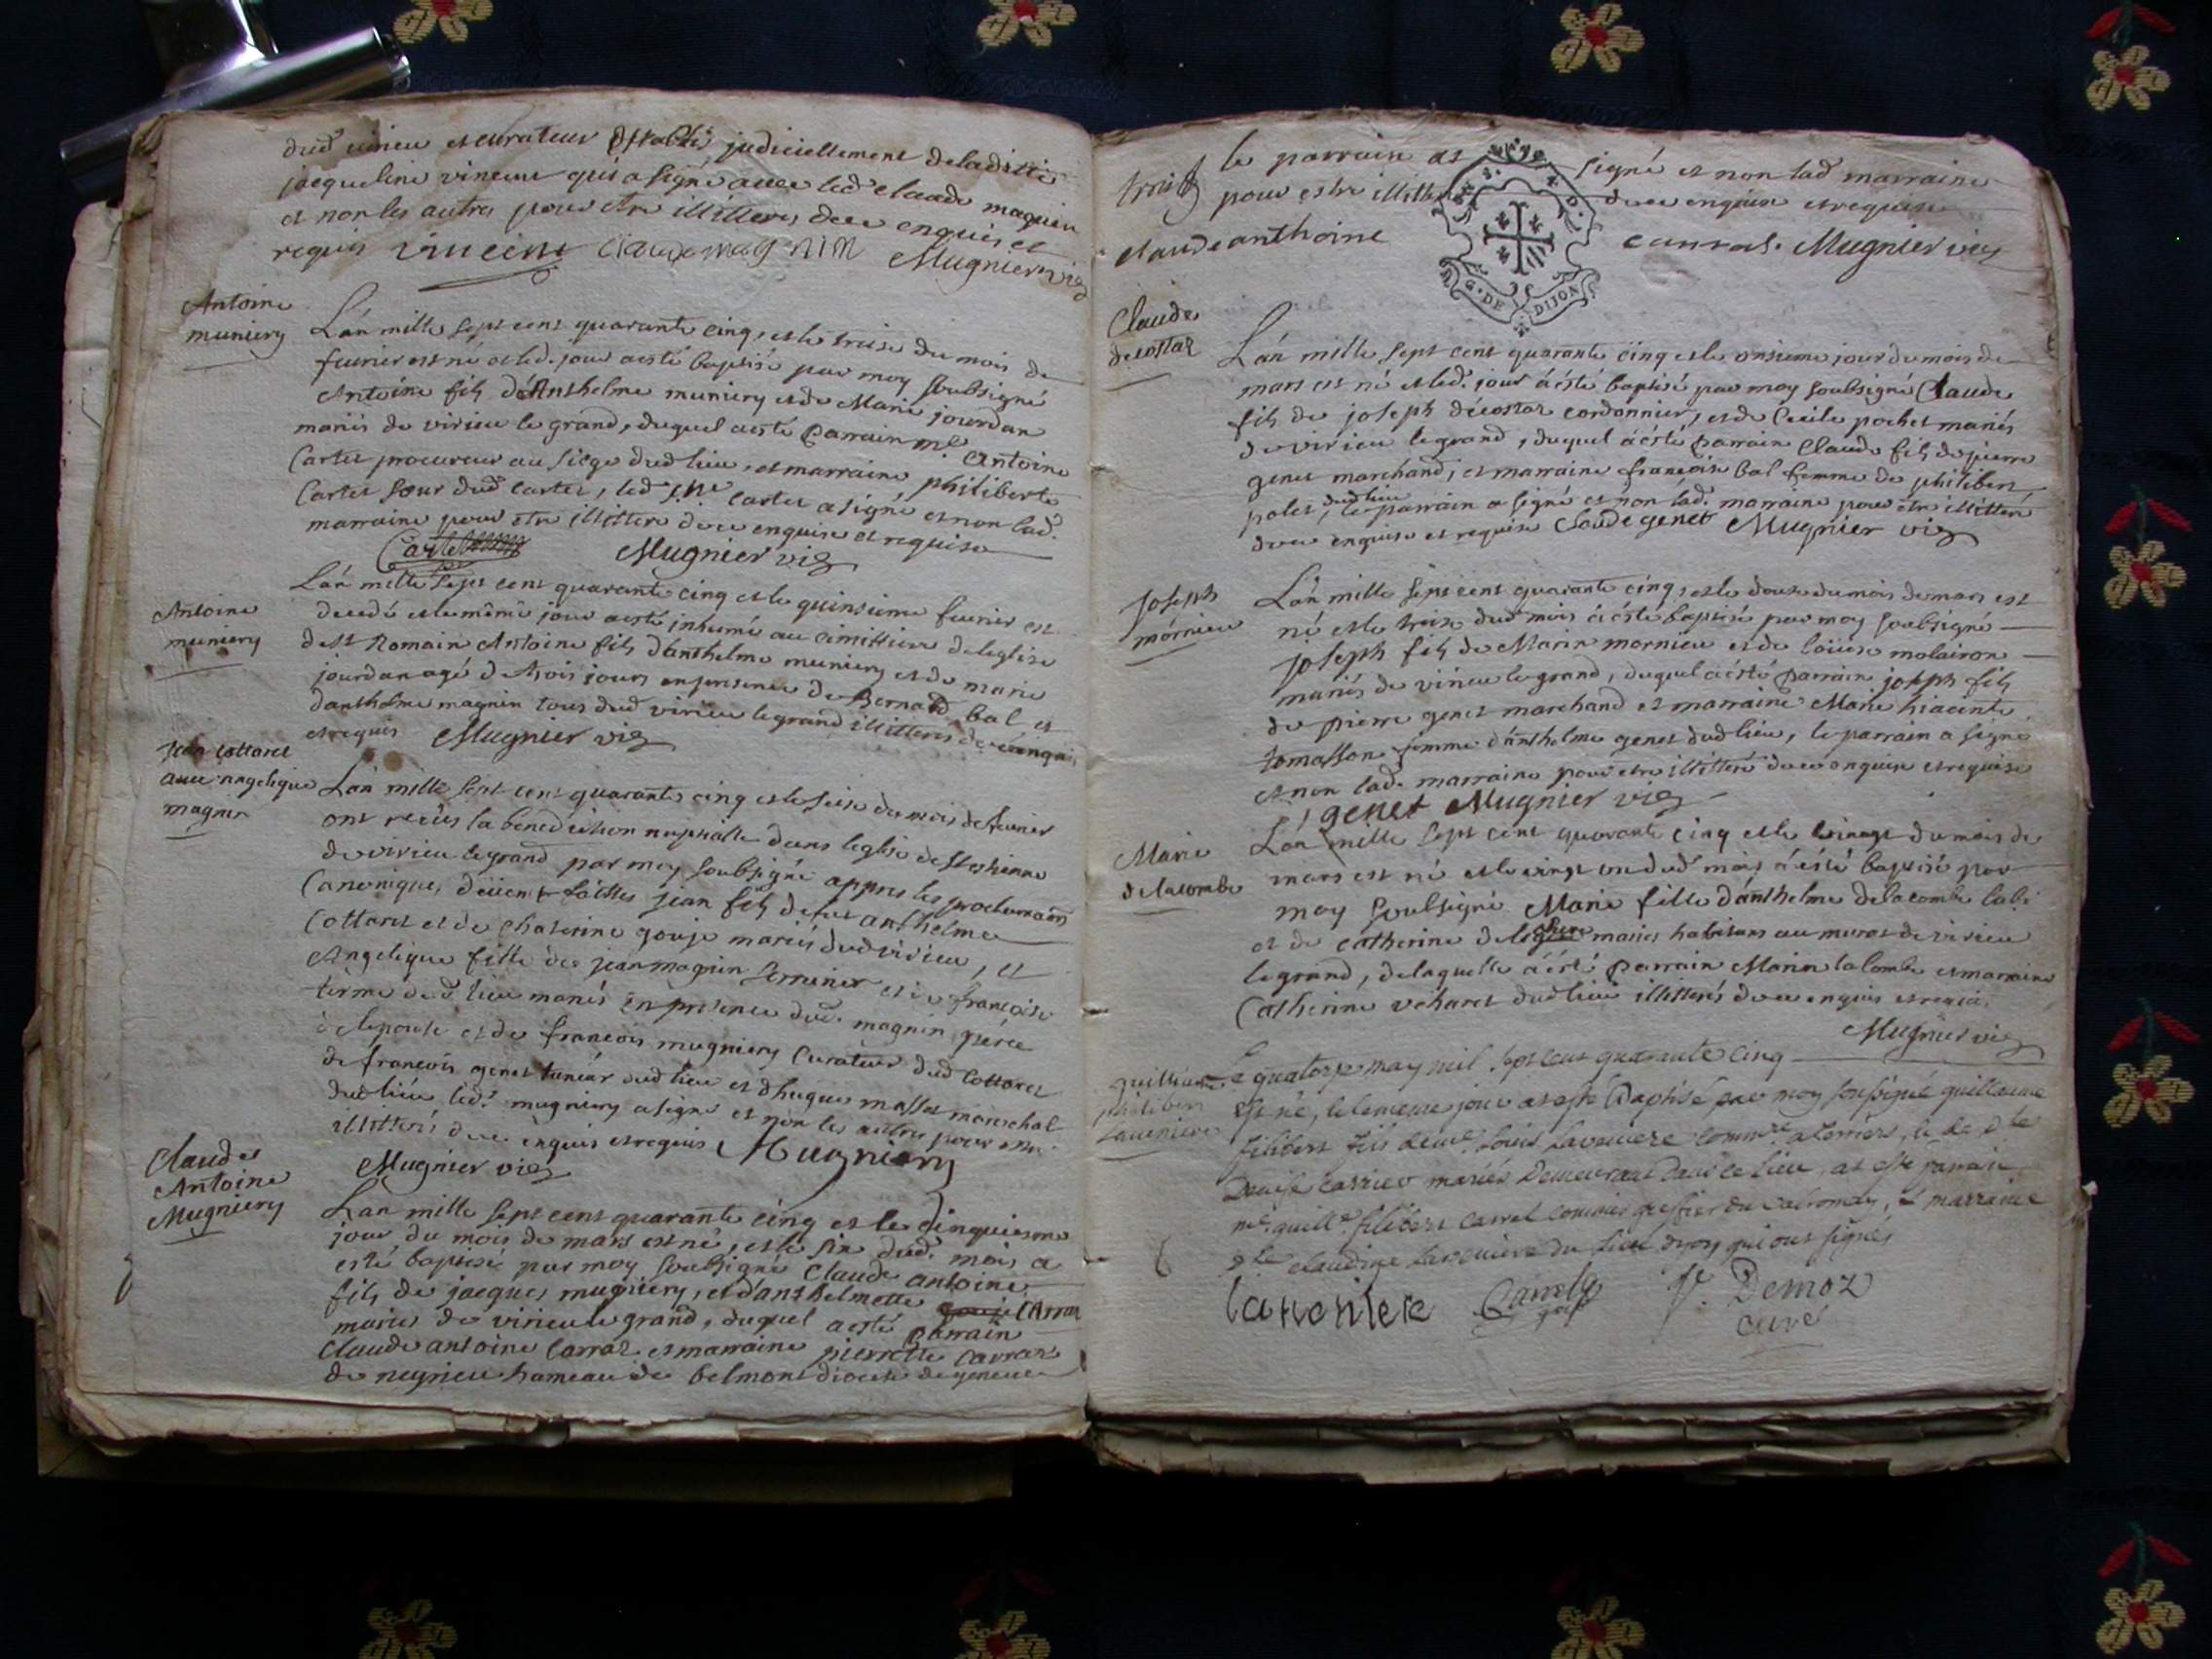 dud virieu et curateur establis judiciellement deladitte
jacqueline vincent qui a signé avec led claude magnin
et non les autres pour etre illitterez dece enquis et
requis vincent claude magnin Mugnier vic
Antoine
muniery
L'an mille sept cent quarante cinq, et le treise du mois de
fevrier est né et led. jour aesté baptisé par moy soubsigné
Antoine fils d'Anthelme muniery et de Marie jourdan
mariés de virieu le grand, duquel aesté Parrain mr. Antoine
Cartet procureur au siège dud lieu, et marraine philiberte
Cartet sœur dud cartet, led sr cartet a signé et non lad.
marraine pour etre illitteré de ce enquise et requise
Cartet Mugnier vic
Antoine
muniery
L'an mille sept cent quarante cinq et le quinsieme fevrier est
decedé et le même jour aesté inhumé au cimettiere deleglise
de st Romain Antoine fils d'anthelme muniery et de marie
jourdan agé de trois jours en presence de Bernard bal et
d'anthelme magnin tous dud virieu le grand illitterés de ce enquis
et requis Mugnier vic
Jean Cottaret
avec angelique
magnin
L'an mille sept cent quarante cinq et le seise du mois de fevrier
ont reçus la benediction nuptialle dans leglise de st estienne
de virieu le grand par moy soubsigné appres les proclamaõns
Canoniques deüement faittes jean fils de fut anthelme
Cottaret et de Chaterine gouje mariés dud virieu, et
Angelique fille de jean magnin serrurier et de françoise
terme dud lieu mariés en presence dud. magnin père
de lepouse et de françois mugniery Curateur dud Cottaret
de françois genet taneur dud lieu et d'hugue masset marechal
dud lieu led. mugniery a signé et non les autres pour etre
illitterés de ce enquis et requis Mugniery
Mugnier vic
Claude
Antoine
Mugniery
L'an mille sept cent quarante cinq et le cinquiesme
jour du mois de mars est né, et le six dud. mois a
esté baptisé par moy soubsigné Claude antoine
fils de jacques mugniery, et d'anthelmette Carraz
mariés de virieu le grand, duquel aesté Parrain
Claude antoine Carraz et marraine pierrette Carraz
de negrieu hameau de belmont diocese de geneve
le parrain at signé et non lad marraine
pour estre illitteré de ce enquise et requise
claude anthoine carraz. Mugnier vic
G. DE DIJON
Claude
decostaz
L'an mille sept cent quarante cinq et le onsieme jour du mois de
mars est né et led. jour à esté baptisé par moy soubsigné Claude
fils de joseph decostaz cordonnier, et de Cecile pochet mariés
de virieu le grand, duquel à esté parrain Claude fils de pierre
genet marchand, et marraine françoise bal femme de philibert
polet, dud lieu le parrain a signé et non lad. marraine pour etre illitteré
de ce enquise et requise Claude genet Mugnier vic
Joseph
mornieu
L'an mille sept cent quarante cinq, et le douse du mois de mars est
né et le treise dud mois à esté baptisé par moy soubsigné
joseph fils de Marin mornieu et de loüise molairon
mariés de virieu le grand, duquel à esté parrain joseph fils
de pierre genet marchand et marraine Marie hiacente
tomasson femme d'anthelme genet dud lieu, le parrain a signé
et non lad. marraine pour etre illitteré de ce enquise et requise
J genet Mugnier vic
Marie
delacombe
L'an mille sept cent quarante cinq et le vingt du mois de
mars est né et le vingt un dud mois à esté baptisé par
moy soubsigné Marie fille d'anthelme delacombe
et de catherine mariés habitans au muraz de virieu
le grand, de laquelle à esté parrain Marin lalombe et marraine
Catherine vcharet dud lieu illitterés de ce enquis et requis
Mugnier vic
guilliaume
philibert
Laveniere
Le quatorze may mil sept cent quarante cinq
est né, et le meme jour at esté baptisé par moy soussigné guillaume
filibert fils de mr. Louis Laveniere et de dlle
Denise carrier mariés demeurant dans ce lieu, at esté parrain
mr. guille filibert carrel commis greffier du valromey, et marraine
dlle claudine Laveniere du lieu qui ont signés
Laveniere Carrel gref V. Demoz
curé